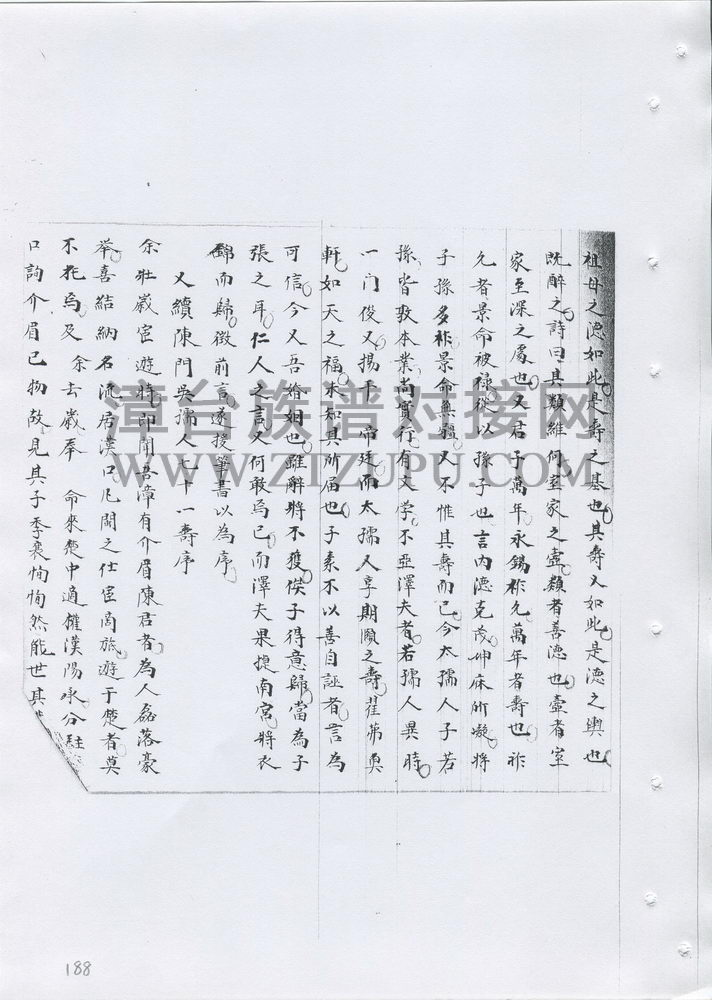 祖母之德如此是壽之基也其壽又如此是德之輿也
既醉之詩曰其類維何室家之壼類者善德也壼者室
家至深之處也又君子萬年永錫祚允萬年者壽也祚
允者景命被祿從以孫子也言內德克茂坤庥所凝將
子孫多祚景命無疆又不惟其壽而已今太孺人子若
孫皆敦本業尚實行有文學不亞澤夫者若孺人異時
一门俊又揚于 帝廷而太孺人享期頤之壽翟茀奐
軒如天之福未知其所屆也子素不以善自誣者言為
可信今又吾婚姻也雖辭將不獲俟子得意歸當為子
張之耳仁人之言又何敢焉已而澤夫果捷南宮將衣
錦而歸徴前言遂授筆書以為序
又續陳門吳孺人七十一壽序
余壯歲宦遊將即聞吾漳有介眉陳君者為人磊落豪
举喜結納名流居漢口凡閩之仕宦商旅遊于楚者莫
不 焉及 余去歲奉 命來楚中適權漢陽 分駐
口詢介眉已物故見其子季 恂恂然能世其
漳台族谱对接网
WWW.ZTZUPU.COM
188